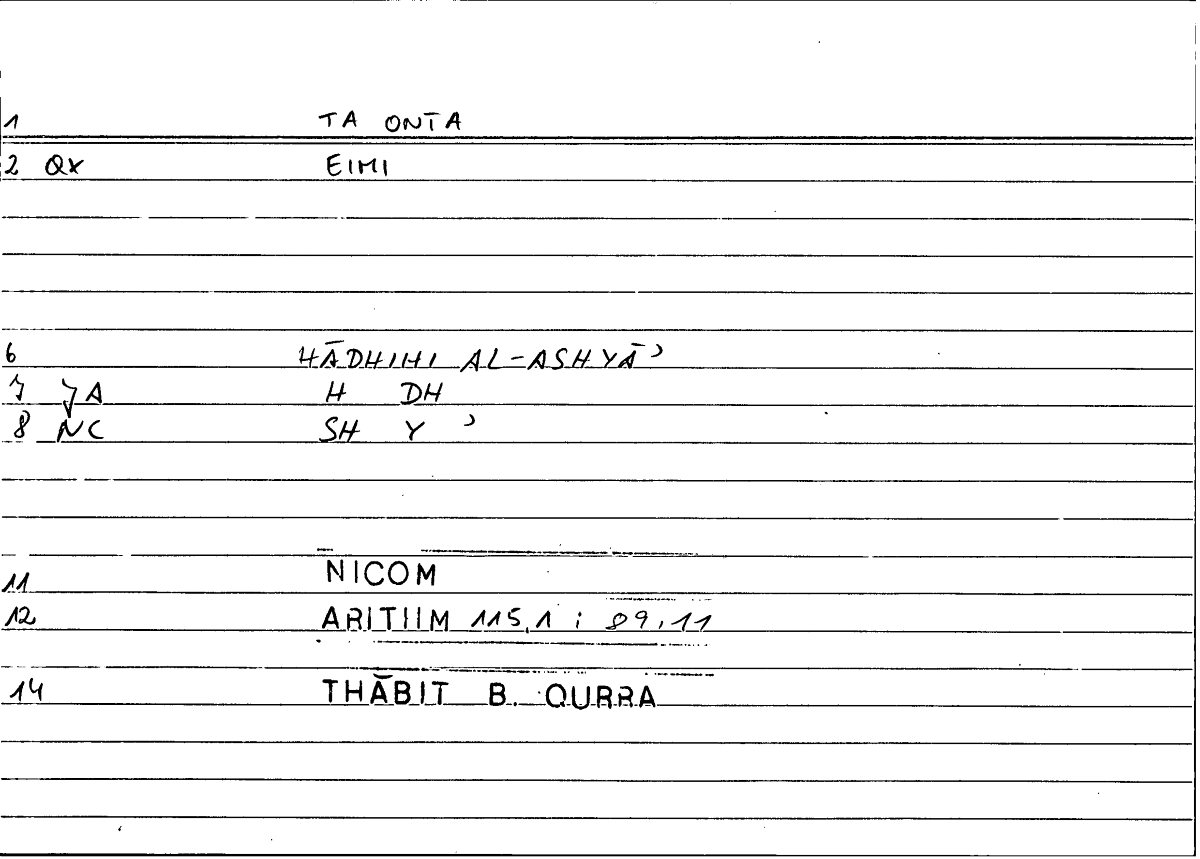 1 TA ONTA
2 QX EIMI
6 HĀDHIHI AL-ASHYĀʾ
7 JA H DH
8 NC SH Y ʾ
11 NICOM
12 ARITIIM 115,1 ; 89,11
14 THĀBIT B. QURRA